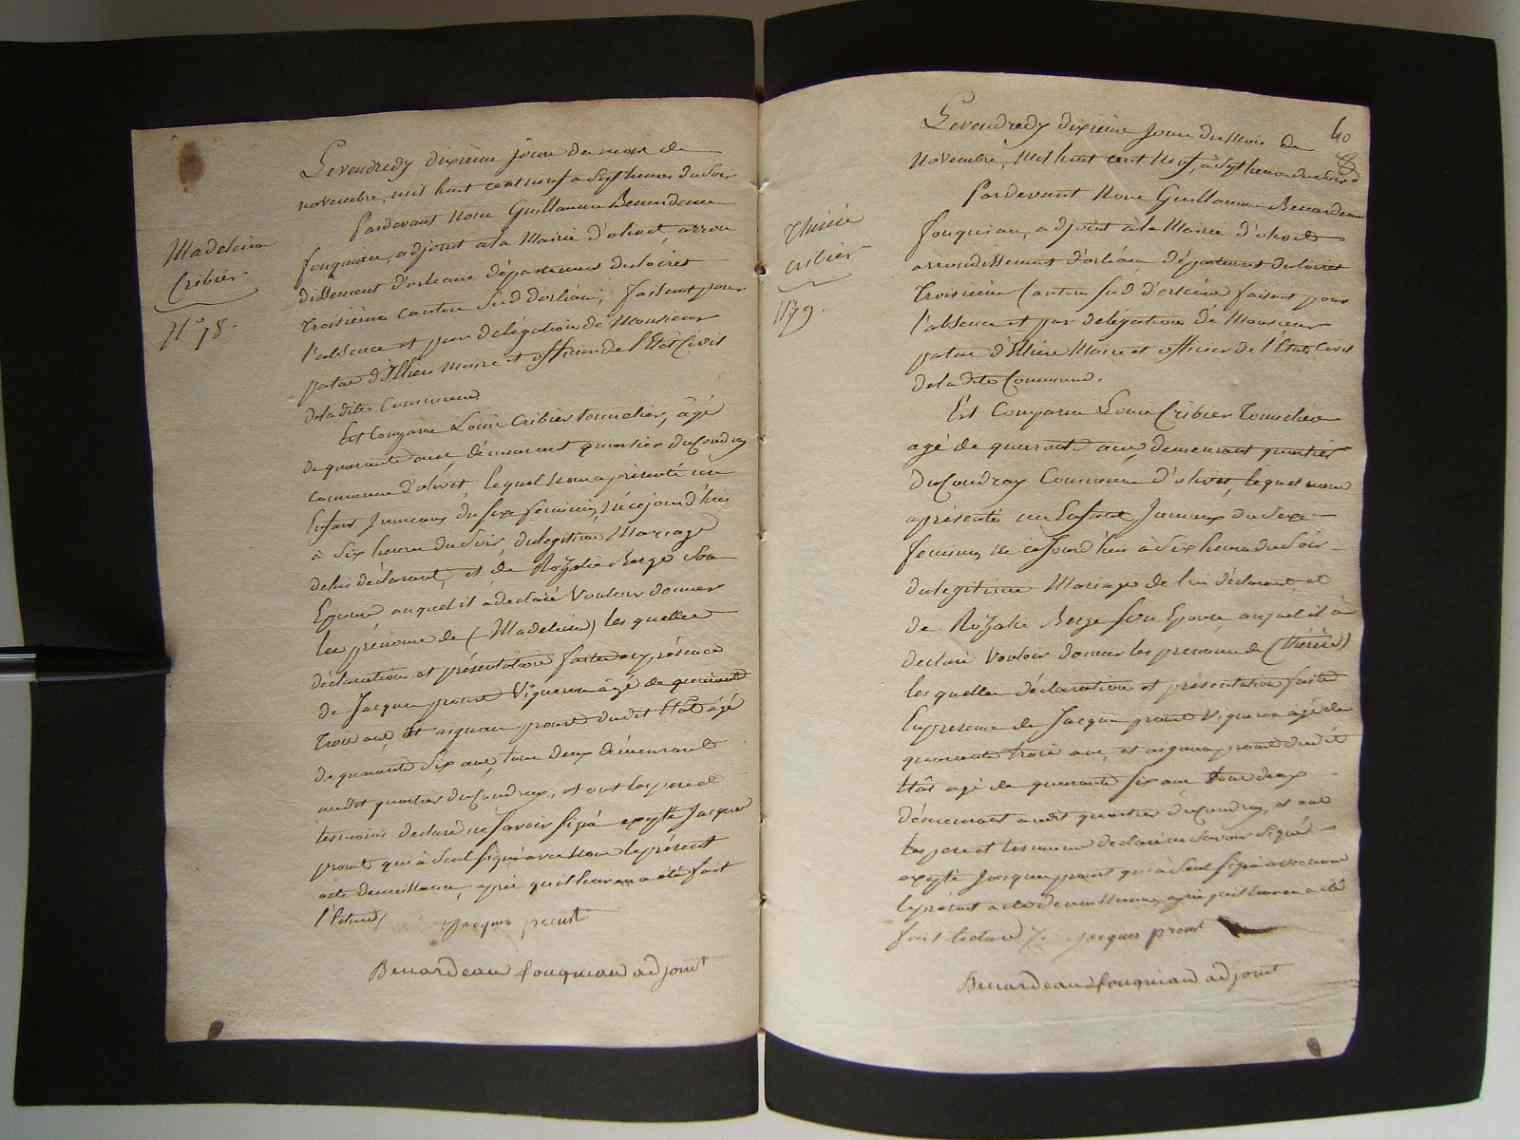 Madeleine
Cribier
N° 78.
Le vendredy dixieme jour du mois de
novembre, mil huit cent neuf a Sept heures du Soir
Pardevant Nous Guillaume Benardeau
fouqueau, adjoint a la Mairie d'olivet, arron
dissement d'orleans département du loiret
troisième canton Sud d'orléans, faisant pour
l'absence et par délégation de Monsieur
d'Illiers Maire et officier de l'Etat Civil
de la dite Commune
Est Comparu Louis Cribier tonnelier, âgé
de quarante ans demeurant quartier du Coudray
commune d'olivet, lequel nous a présenté un
Enfant Jumeaux du sexe feminin, né ce jourd'hui
à Six heures du Soir, du legitime Mariage
de lui déclarant, et de Rozalie Berge Son
Epouse auquel il a déclaré Vouloir donner
les prénoms de (Madeleine) les quelles
déclaration et présentation faite en présence
de Jacques proust Vigneron âgé de quarante
trois ans, et aignan proust dudit Etat âgé
de quarante Six ans, tous deux demeurant
audit quartier du Coudray, et ont les pere et
temoins declaré ne Savoir Signé excepté Jacques
proust qui à Seul Signé avec Nous le présent
acte de naissance, après qu'il leur en a été fait
lecture Jacques proust
Benardeau fouqueau adjoint
40
Thérèse
cribier
N° 79.
Le vendredy dixieme Jour du Mois de
Novembre, Mil huit cent Neuf, à Sept heures du Soir
Pardevant Nous Guillaume Benardeau
fouqueau, adjoint à la Mairie d'olivet
arrondissement d'orléans département du loiret
troisième Canton Sud d'orléans faisant pour
l'absence et par délégation de Monsieur
d'Illiers Maire et officier de l'Etat Civil
de la dite Commune.
Est Comparu Louis Cribier Tonnelier
agé de quarante ans, demeurant quartier
du Coudray Commune d'olivet, lequel nous
a présenté un Enfant Jumeaux du Sexe
feminin, né ce Jourd'hui à Six heures du Soir
du legitime Mariage de lui déclarant et
de Rozalie Berge Son Epouse, auquel il a
declaré Vouloir donner les prenoms de (Thérèse)
les quelles déclaration et présentation faite
En presence de Jacques proust Vigneron agé de
quarante trois ans, et aignan proust dudit
Etat agé de quarante Six ans tous deux
demeurant audit quartier du Coudray, et ont
les pere et temoins declaré ne Savoir Signé
excepté Jacques proust qui à Seul Signé avec nous
le présent acte de naissance, après qu'il leur en a été
fait lecture Jacques proust
Benardeau fouqueau adjoint